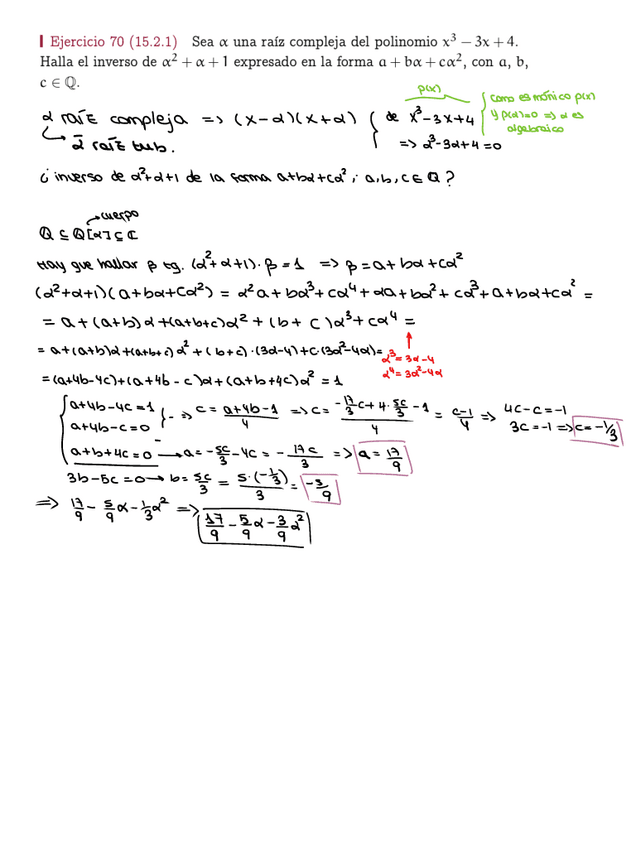 Ejercicio 70 (15.2.1) Sea α una raíz compleja del polinomio x³ − 3x + 4.
Halla el inverso de α² + α + 1 expresado en la forma a + bα + cα², con a, b,
c ∈ ℚ.
p(x)
α raíz compleja => (x-α)(x+α) { de x³-3x+4 { como es mónico p(x)
y p(α)=0 => α es
algebraico
ᾱ raíz tub. => α³-3α+4=0
¿inverso de α²+α+1 de la forma a+bα+cα²; a,b,c ∈ ℚ?
cuerpo
ℚ ⊆ ℚ[α] ⊆ ℂ
Hay que hallar β tq. (α²+α+1)·β = 1 => β = a+bα+cα²
(α²+α+1)(a+bα+cα²) = α²a+bα³+cα⁴+αa+bα²+cα³+a+bα+cα² =
= a+(a+b)α+(a+b+c)α²+(b+c)α³+cα⁴ =
= a+(a+b)α+(a+b+c)α²+(b+c)·(3α-4)+c·(3α²-4α)=
α³=3α-4
α⁴=3α²-4α
=(a+4b-4c)+(a+4b-c)α+(a+b+4c)α² = 1
{ a+4b-4c=1
a+4b-c=0 } => c = (a+4b-1)/4 => c = (-17/3 c + 4·5c/3 - 1)/4 = (c-1)/4 => 4c-c=-1
3c=-1 => c=-1/3
a+b+4c=0 → a = -5c/3 - 4c = -17c/3 => a = 17/9
3b-5c=0 → b = 5c/3 = 5·(-1/3)/3 = -5/9
=> 17/9 - 5/9 α - 1/3 α² => 17/9 - 5/9 α - 3/9 α²